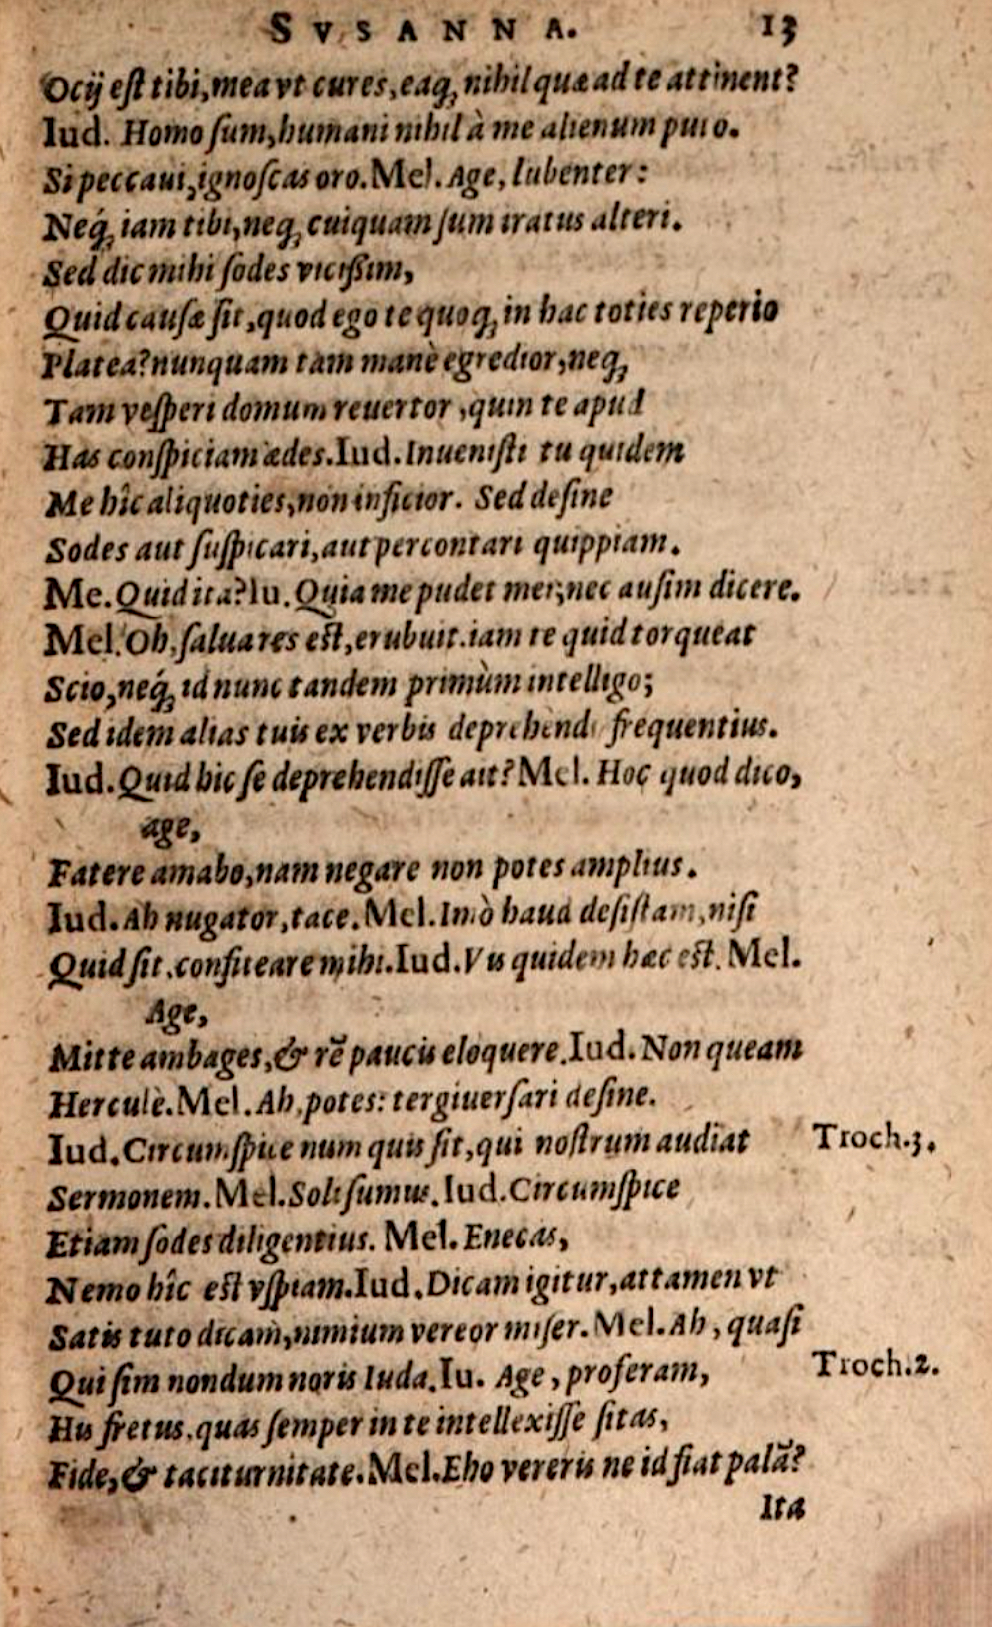 SVSANNA. 13
Ocij est tibi, mea vt cures, eaq; nihil quæ ad te attinent?
Iud. Homo sum, humani nihil à me alienum puto.
Si peccaui, ignoscas oro. Mel. Age, lubenter:
Neq́; iam tibi, neq; cuiquam sum iratus alteri.
Sed dic mihi sodes vicißim,
Quid causæ sit, quod ego te quoq; in hac toties reperio
Platea? nunquam tam manè egredior, neq;
Tam vesperi domum reuertor, quin te apud
Has conspiciam ædes. Iud. Inuenisti tu quidem
Me hîc aliquoties, non inficior. Sed desine
Sodes aut suspicari, aut percontari quippiam.
Me. Quid ita? Iu. Quia me pudet mei; nec ausim dicere.
Mel. Oh, salua res est, erubuit. iam te quid torqueat
Scio, neq́; id nunc tandem primùm intelligo;
Sed idem alias tuis ex verbis deprehendi frequentius.
Iud. Quid hic se deprehendisse ait? Mel. Hoc quod dico,
age,
Fatere amabo, nam negare non potes amplius.
Iud. Ah nugator, tace. Mel. Imò haud desistam, nisi
Quid sit, confiteare mihi. Iud. Vis quidem hæc est. Mel.
Age,
Mitte ambages, & rē paucis eloquere. Iud. Non queam
Herculè. Mel. Ah, potes: tergiuersari desine.
Iud. Circumspice num quis sit, qui nostrum audiat Troch.3.
Sermonem. Mel. Soli sumus. Iud. Circumspice
Etiam sodes diligentius. Mel. Enecas,
Nemo hîc est vspiam. Iud. Dicam igitur, attamen vt
Satis tuto dicam, nimium vereor miser. Mel. Ah, quasi
Qui sim nondum noris Iuda. Iu. Age, proferam, Troch.2.
His fretus, quas semper in te intellexisse sitas,
Fide, & taciturnitate. Mel. Eho vereris ne id fiat palā?
Ita